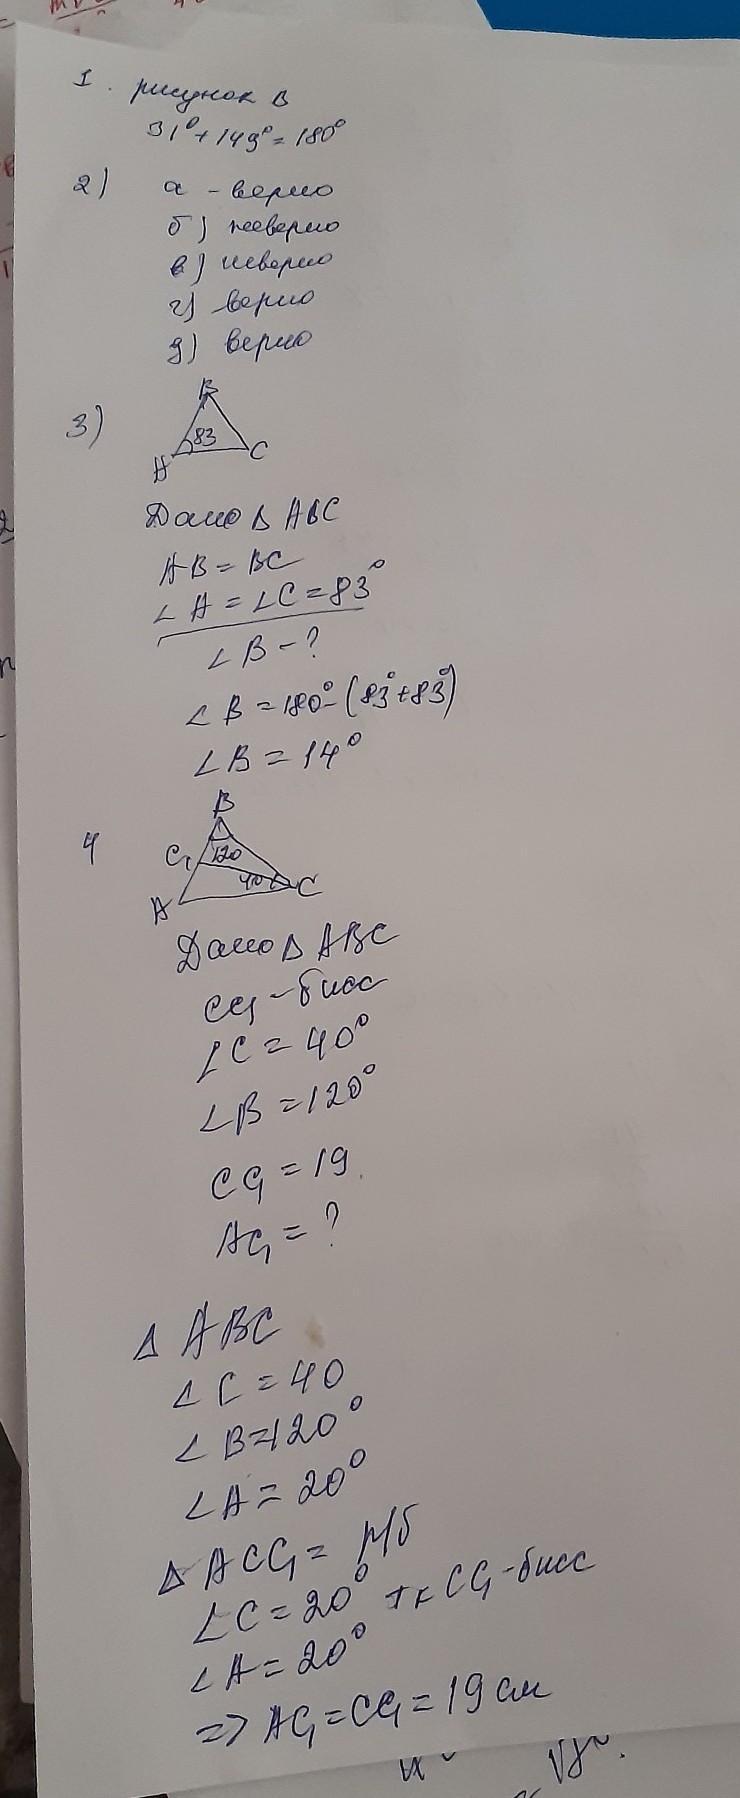 1. рисунок в
31° + 149° = 180°
2) а - верно
б) неверно
в) неверно
г) верно
д) верно
3) B
83
A C
Дано Δ ABC
AB = BC
∠A = ∠C = 83°
∠B - ?
∠B = 180° - (83° + 83°)
∠B = 14°
4 B
C₁ 120
40 C
A
Дано Δ ABC
CC₁ - бисс
∠C = 40°
∠B = 120°
CC₁ = 19
AC₁ = ?
Δ ABC
∠C = 40
∠B = 120°
∠A = 20°
Δ ACC₁ = р/б
∠C = 20° тк CC₁ - бисс
∠A = 20°
=> AC₁ = CC₁ = 19 см